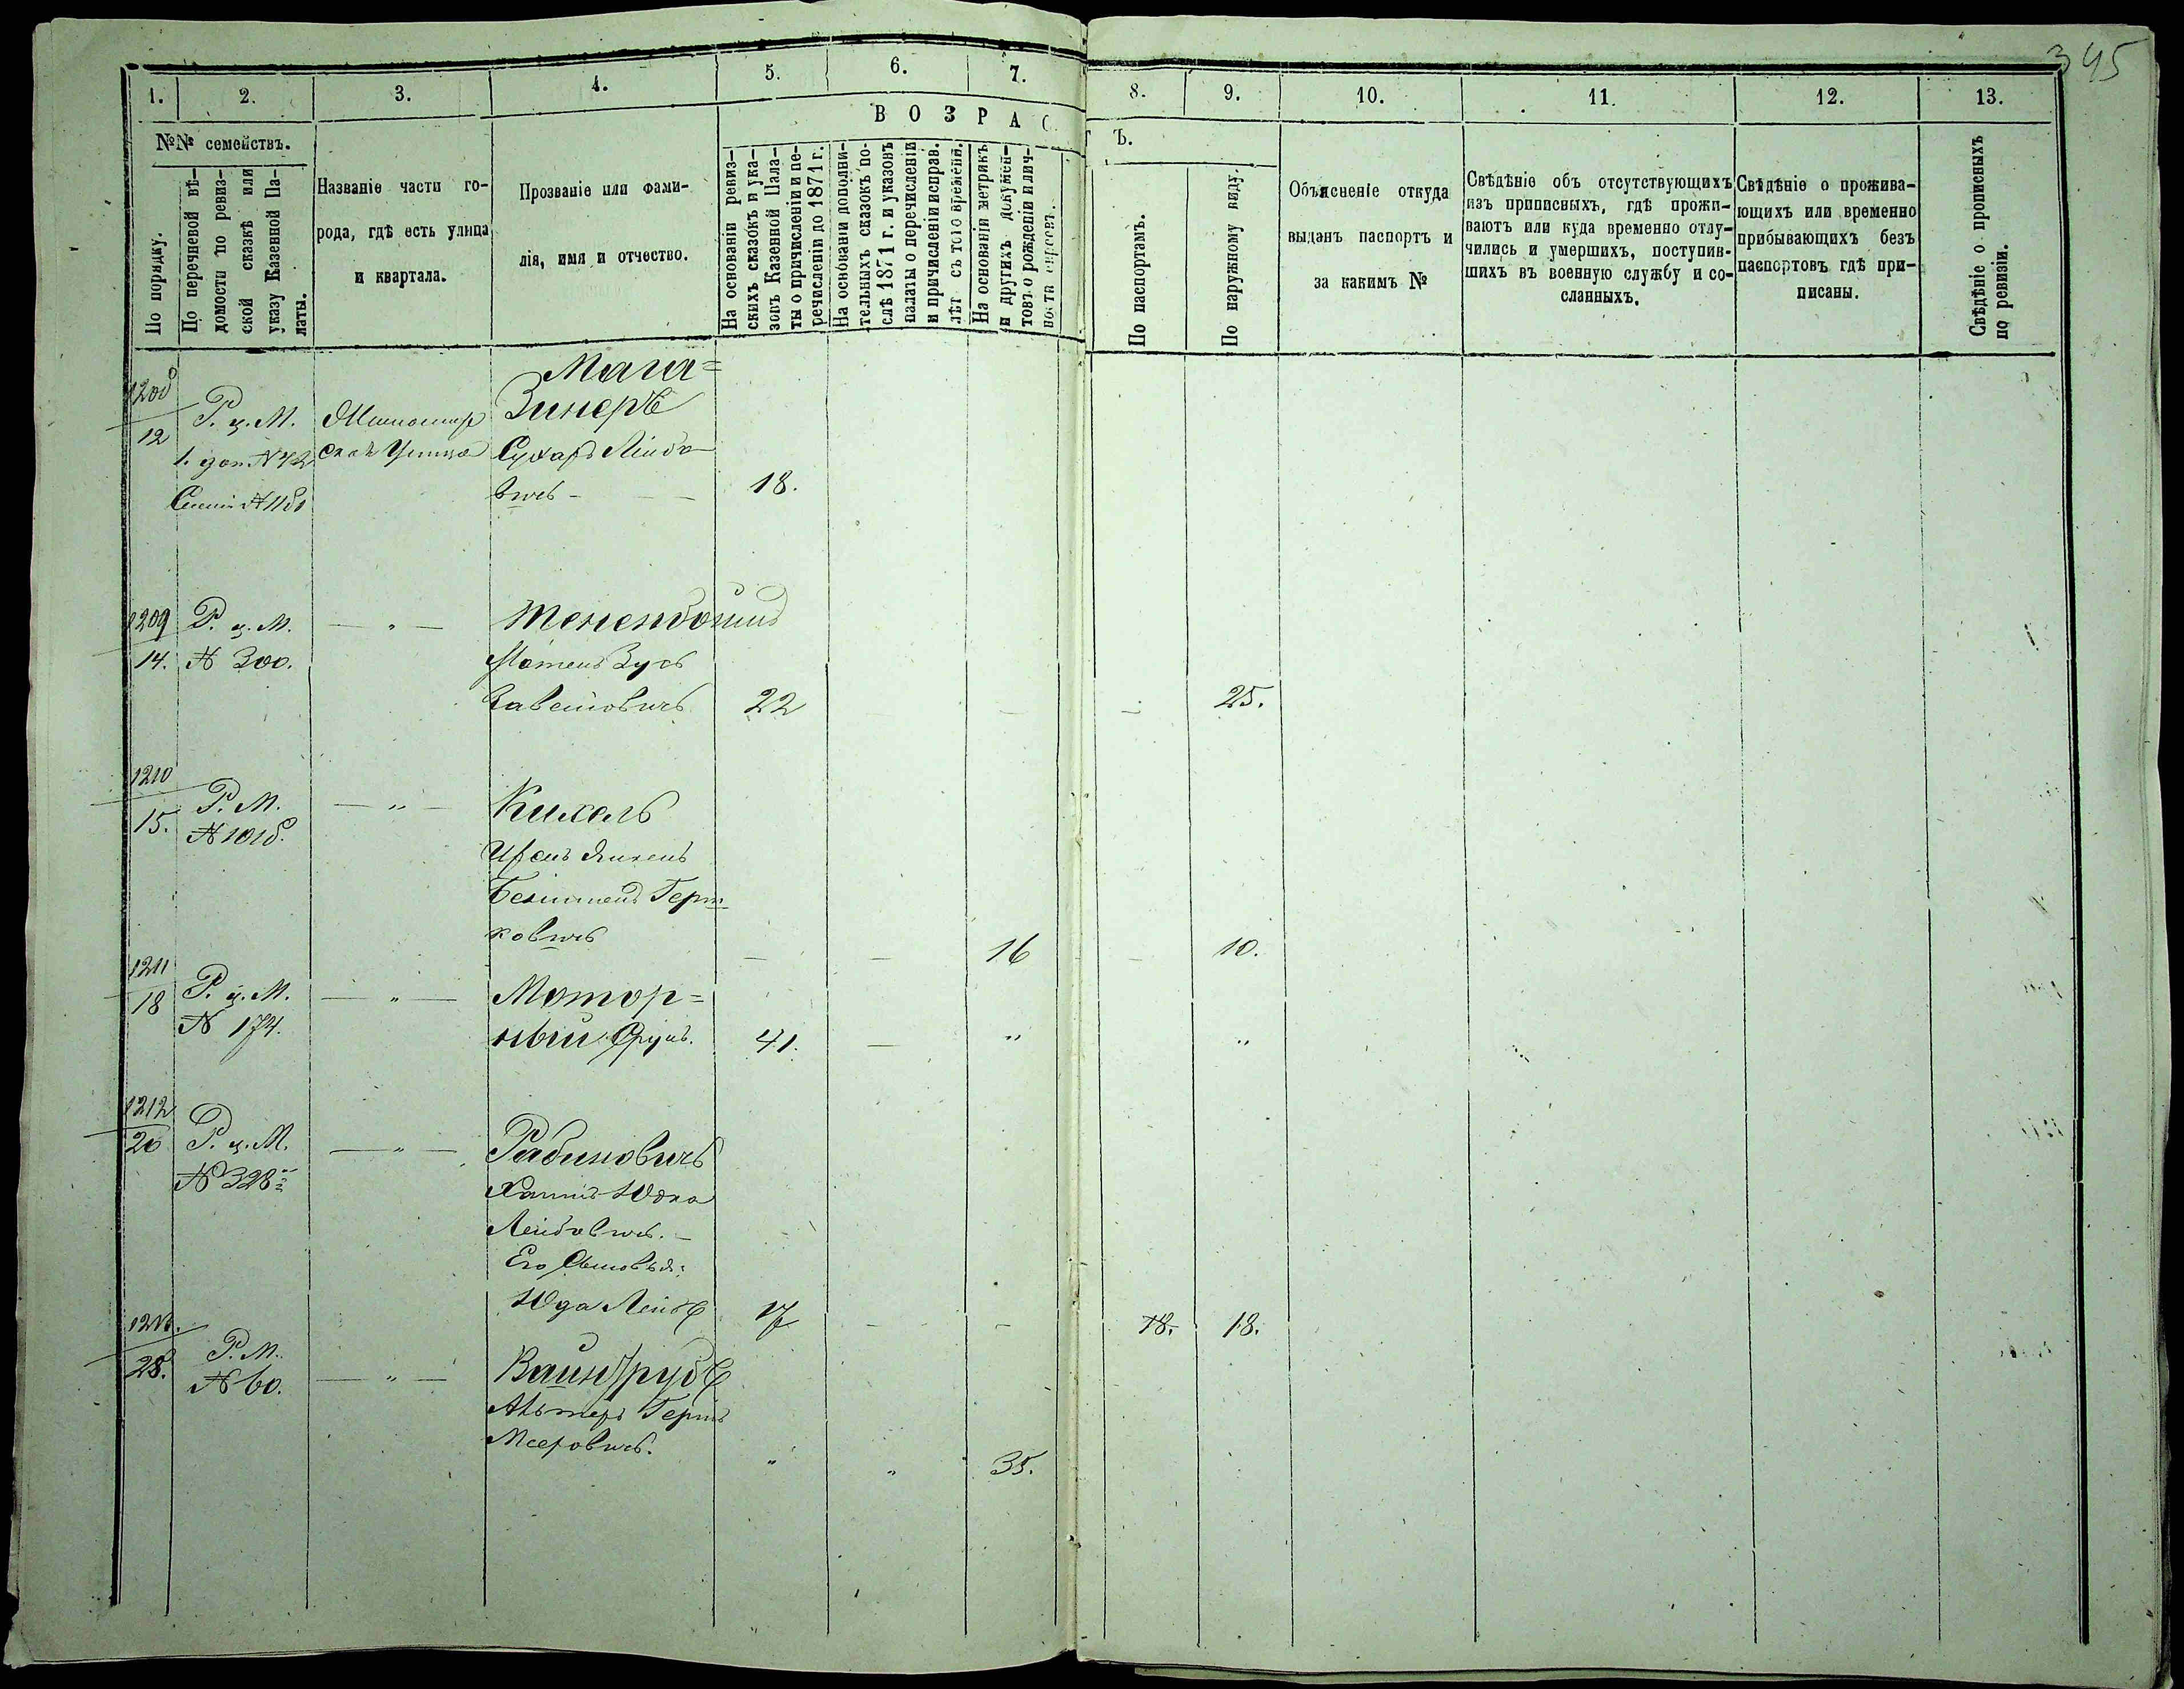 345
1. 2. 3. 4. 5. 6. 7. 8. 9. 10. 11. 12. 13.
№№ семействъ.
По порядку.
По перечневой вѣ-
домости по ревиз-
ской сказкѣ или
указу Казенной Па-
латы.
Названіе части го-
рода, гдѣ есть улица
и квартала.
Прозваніе или фами-
лія, имя и отчество.
ВОЗРАСТЪ.
На основаніи ревиз-
скихъ сказокъ и ука-
зовъ Казенной Пала-
ты о причисленіи и пе-
речисленіи до 1871 г.
На основаніи дополни-
тельныхъ сказокъ по-
слѣ 1871 г. и указовъ
палаты о перечисленіи
и причисленіи исправ.
лѣт съ того времени.
На основаніи метрикъ
и другихъ докумен-
товъ о рожденіи и лич-
По паспортамъ.
По наружному виду.
Объясненіе откуда
выданъ паспортъ и
за какимъ №
Свѣдѣніе объ отсутствующихъ
изъ приписныхъ, гдѣ прожи-
ваютъ или куда временно отлу-
чились и умершихъ, поступив-
шихъ въ военную службу и со-
сланныхъ.
Свѣдѣніе о прожива-
ющихъ или временно
прибывающихъ безъ
паспортовъ гдѣ при-
писаны.
Свѣдѣніе о прописныхъ
по ревизіи.
1208
12
Р. ц. М.
1. доп. № 42
Мага=
зинеръ
Сухаръ Лейбо-
вичъ - 18.
1209
14.
Р. ц. М.
№ 300.
— „ —
Тененбоимъ
Мотель Зусь
22 — — — 25.
1210
15.
Р. М.
№ 1018.
— „ —
Кихель
Герш-
ковичъ
— — 16 — 10.
1211
18
Р. ц. М.
№ 174.
— „ —
Мотор=
ный Сруль. 41. — „ „
1212
20
Р. ц. М.
№ 328
— „ —
Рабиновичъ
Хаимъ-Юдка
Лейбовичъ. —
Его Сыновья:
Юда Лейбъ 17 — — 18. 18.
28.
Р. М.
№ 60.
— „ —
Вайнтрубъ
Альтеръ Гершъ
Мееровичъ.
„ „ 35.